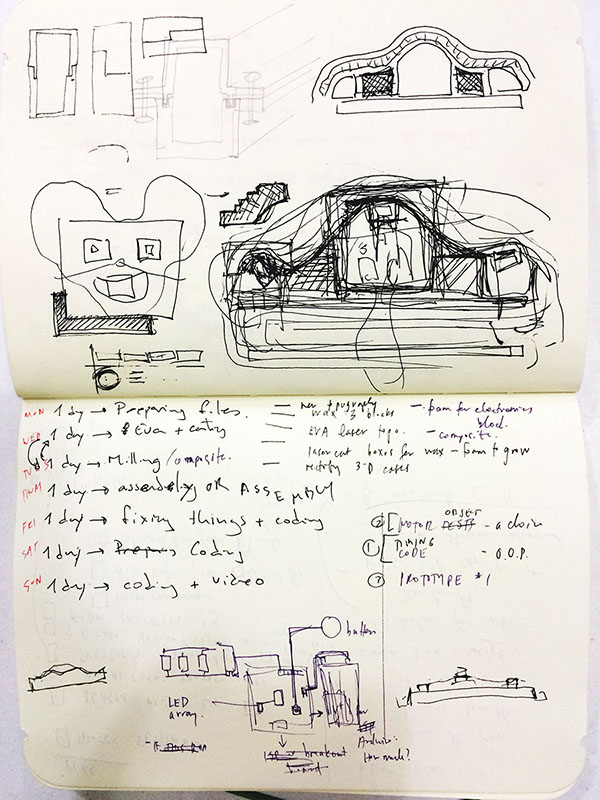 MON 1 day → Preparing files. — new topography — foam for electronics
wax 3 blocks block.
WED 1 day → EVA + cutting — EVA laser topo. - composite.
TUES 1 day → Milling/composite. — laser cut boxes for wax - foam to grow
rectify 3-D cases
THUR 1 day → assembly OR ASSEMBLY
FRI 1 day → fixing things + coding
② [MOTOR OBJECT TESTS
SAT 1 day → Prepare Coding
① [TIMING
CODE - O.O.P.
SUN 1 day → coding + video
③ PROTOTYPE #1
button
LED
array.
breakout
board
Arduino:
How much?